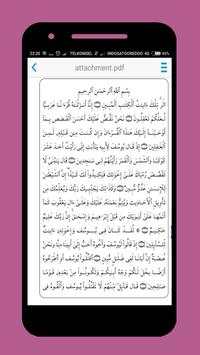 22:20 TELKOMSEL INDOSATOOREDOO 4G
attachment.pdf
بِسْمِ ٱللَّهِ ٱلرَّحْمَـٰنِ ٱلرَّحِيمِ
الٓر تِلْكَ ءَايَـٰتُ ٱلْكِتَـٰبِ ٱلْمُبِينِ ۝ إِنَّآ أَنزَلْنَـٰهُ قُرْءَٰنًا عَرَبِيًّا
لَّعَلَّكُمْ تَعْقِلُونَ ۝ نَحْنُ نَقُصُّ عَلَيْكَ أَحْسَنَ ٱلْقَصَصِ بِمَآ
أَوْحَيْنَآ إِلَيْكَ هَـٰذَا ٱلْقُرْءَانَ وَإِن كُنتَ مِن قَبْلِهِۦ لَمِنَ
ٱلْغَـٰفِلِينَ ۝ إِذْ قَالَ يُوسُفُ لِأَبِيهِ يَـٰٓأَبَتِ إِنِّى رَأَيْتُ أَحَدَ
عَشَرَ كَوْكَبًا وَٱلشَّمْسَ وَٱلْقَمَرَ رَأَيْتُهُمْ لِى سَـٰجِدِينَ ۝ قَالَ يَـٰبُنَىَّ
لَا تَقْصُصْ رُءْيَاكَ عَلَىٰٓ إِخْوَتِكَ فَيَكِيدُوا۟ لَكَ كَيْدًا إِنَّ ٱلشَّيْطَـٰنَ
لِلْإِنسَـٰنِ عَدُوٌّ مُّبِينٌ ۝ وَكَذَٰلِكَ يَجْتَبِيكَ رَبُّكَ وَيُعَلِّمُكَ مِن
تَأْوِيلِ ٱلْأَحَادِيثِ وَيُتِمُّ نِعْمَتَهُۥ عَلَيْكَ وَعَلَىٰٓ ءَالِ يَعْقُوبَ كَمَآ
أَتَمَّهَا عَلَىٰٓ أَبَوَيْكَ مِن قَبْلُ إِبْرَٰهِيمَ وَإِسْحَـٰقَ إِنَّ رَبَّكَ
عَلِيمٌ حَكِيمٌ ۝ لَّقَدْ كَانَ فِى يُوسُفَ وَإِخْوَتِهِۦٓ ءَايَـٰتٌ
لِّلسَّآئِلِينَ ۝ إِذْ قَالُوا۟ لَيُوسُفُ وَأَخُوهُ أَحَبُّ إِلَىٰٓ أَبِينَا مِنَّا
وَنَحْنُ عُصْبَةٌ إِنَّ أَبَانَا لَفِى ضَلَـٰلٍ مُّبِينٍ ۝ ٱقْتُلُوا۟ يُوسُفَ أَوِ ٱطْرَحُوهُ
أَرْضًا يَخْلُ لَكُمْ وَجْهُ أَبِيكُمْ وَتَكُونُوا۟ مِنۢ بَعْدِهِۦ قَوْمًا
صَـٰلِحِينَ ۝ قَالَ قَآئِلٌ مِّنْهُمْ لَا تَقْتُلُوا۟ يُوسُفَ وَأَلْقُوهُ فِى